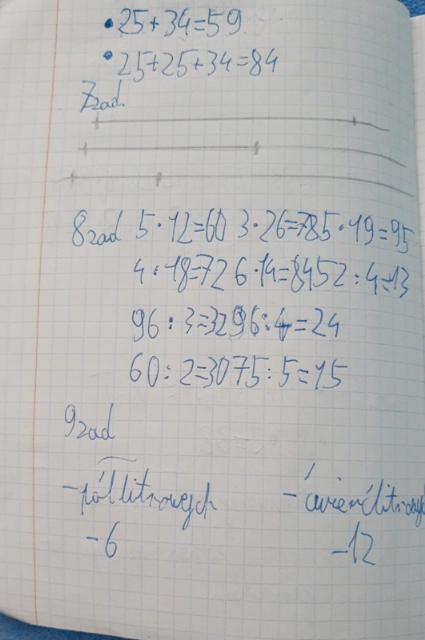 • 25+34=59
• 25+25+34=84
7zad.
8zad 5·12=60 3·26=78 5·19=95
4·18=72 6·14=84 52:4=13
96:3=32 96:4=24
60:2=30 75:5=15
9zad
-półlitrowych -ćwierćlitrowych
-6 -12